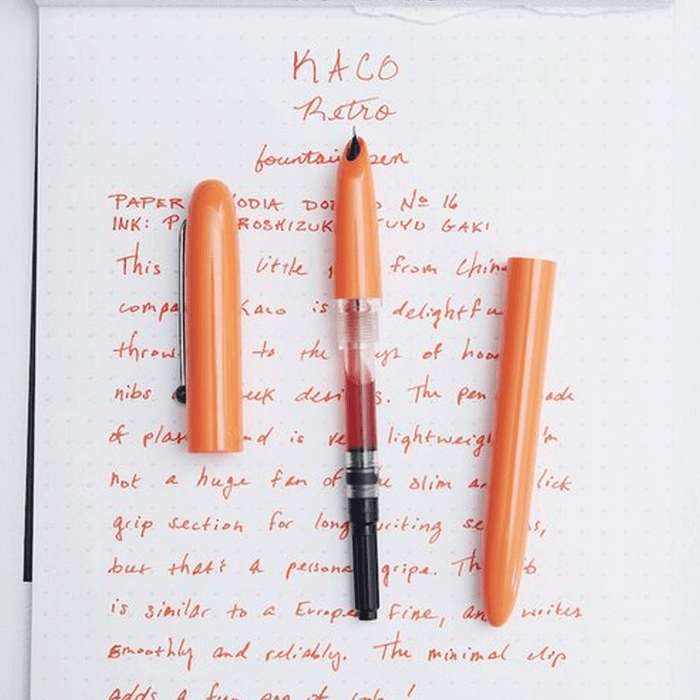 KACO
Retro
fountain pen
PAPER ODIA DO Nº 16
INK: P ROSHIZUK TUYU GAKI
This little from Chin
compa Kaco is delightfu
throw to the ys of hoo
nibs eek desi s. The pen ade
of plas nd is ve lightweigh I'm
not a huge fan of e slim a lick
grip section for long writing se s,
but that's a persona gripe. Th ib
is similar to a Europe Fine, an writes
smoothly and reliably. The minimal clip
adds a fun pop it look!